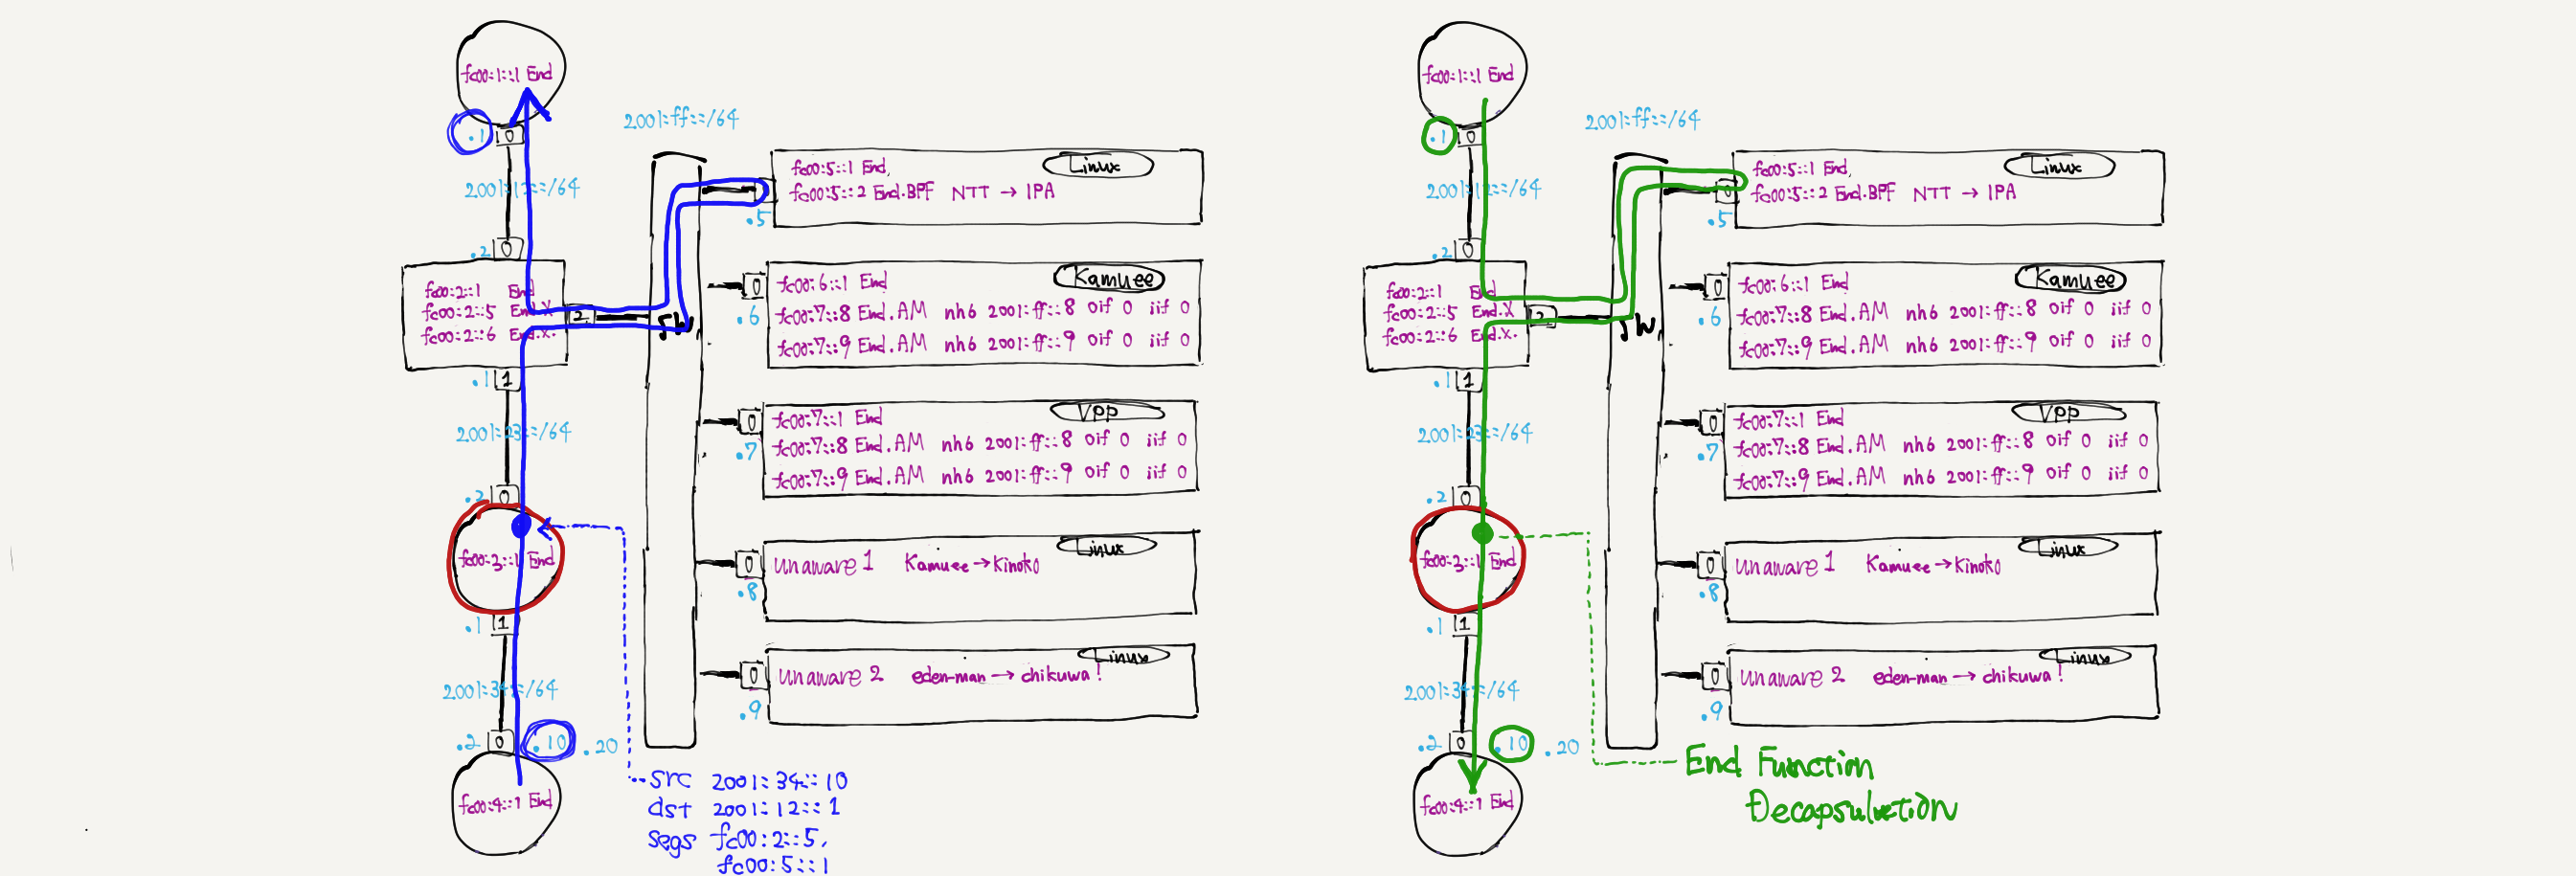 fc00:1::1 End
.1
0
2001:ff::/64
2001:12::/64
.2
0
fc00:2::1 End
fc00:2::5 End.X
fc00:2::6 End.X.
2
SW
.1
1
2001:23::/64
.2
0
fc00:3::1 End
.1
1
2001:34::/64
.2
0
.10
.20
fc00:4::1 End
Linux
fc00:5::1 End,
fc00:5::2 End.BPF NTT → IPA
.5
Kamuee
0
fc00:6::1 End
.6
fc00:7::8 End.AM nh6 2001:ff::8 oif 0 iif 0
fc00:7::9 End.AM nh6 2001:ff::9 oif 0 iif 0
Vpp
0
fc00:7::1 End
.7
fc00:7::8 End.AM nh6 2001:ff::8 oif 0 iif 0
fc00:7::9 End.AM nh6 2001:ff::9 oif 0 iif 0
Linux
0
unaware 1 Kamuee→Kinoko
.8
Linux
0
unaware 2 eden-man → chikuwa!
.9
src 2001:34::10
dst 2001:12::1
segs fc00:2::5,
fc00:5::1
fc00:1::1 End
.1
0
2001:ff::/64
2001:12::/64
.2
0
fc00:2::1 End
fc00:2::5 End.X
fc00:2::6 End.X.
2
SW
.1
1
2001:23::/64
.2
0
fc00:3::1 End
.1
1
2001:34::/64
.2
0
.10
.20
fc00:4::1 End
Linux
fc00:5::1 End,
0
fc00:5::2 End.BPF NTT → IPA
.5
Kamuee
0
fc00:6::1 End
.6
fc00:7::8 End.AM nh6 2001:ff::8 oif 0 iif 0
fc00:7::9 End.AM nh6 2001:ff::9 oif 0 iif 0
Vpp
0
fc00:7::1 End
.7
fc00:7::8 End.AM nh6 2001:ff::8 oif 0 iif 0
fc00:7::9 End.AM nh6 2001:ff::9 oif 0 iif 0
Linux
0
unaware 1 Kamuee→Kinoko
.8
Linux
0
unaware 2 eden-man → chikuwa!
.9
End Function
Decapsulation